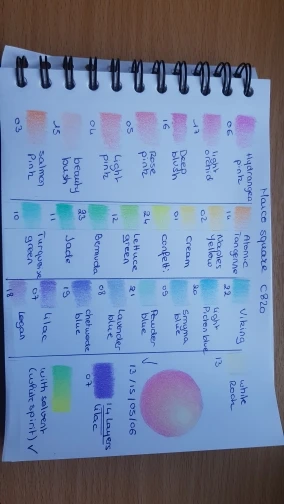 Marco square C820
06 Hydrangea
pink
17 light
orchid
16 Deep
blush
05 Rose
pink
04 light
pink
15 beauty
bush
03 Salmon
pink
14 Atomic
Tangerine
02 Naples
yellow
01 Cream
24 Confetti
12 Lettuce
green
23 Bermuda
11 Jade
10 Turquoise
green
22 Viking
20 light
Picton blue
09 Smyrna
blue
21 Powder
blue
08 Lavender
blue
19 chetwode
blue
07 Lilac
18 Logan
13 white
Rock
✓ 13/15/05/06
07 14 Layers
Lilac
with solvent
(white spirit) ✓